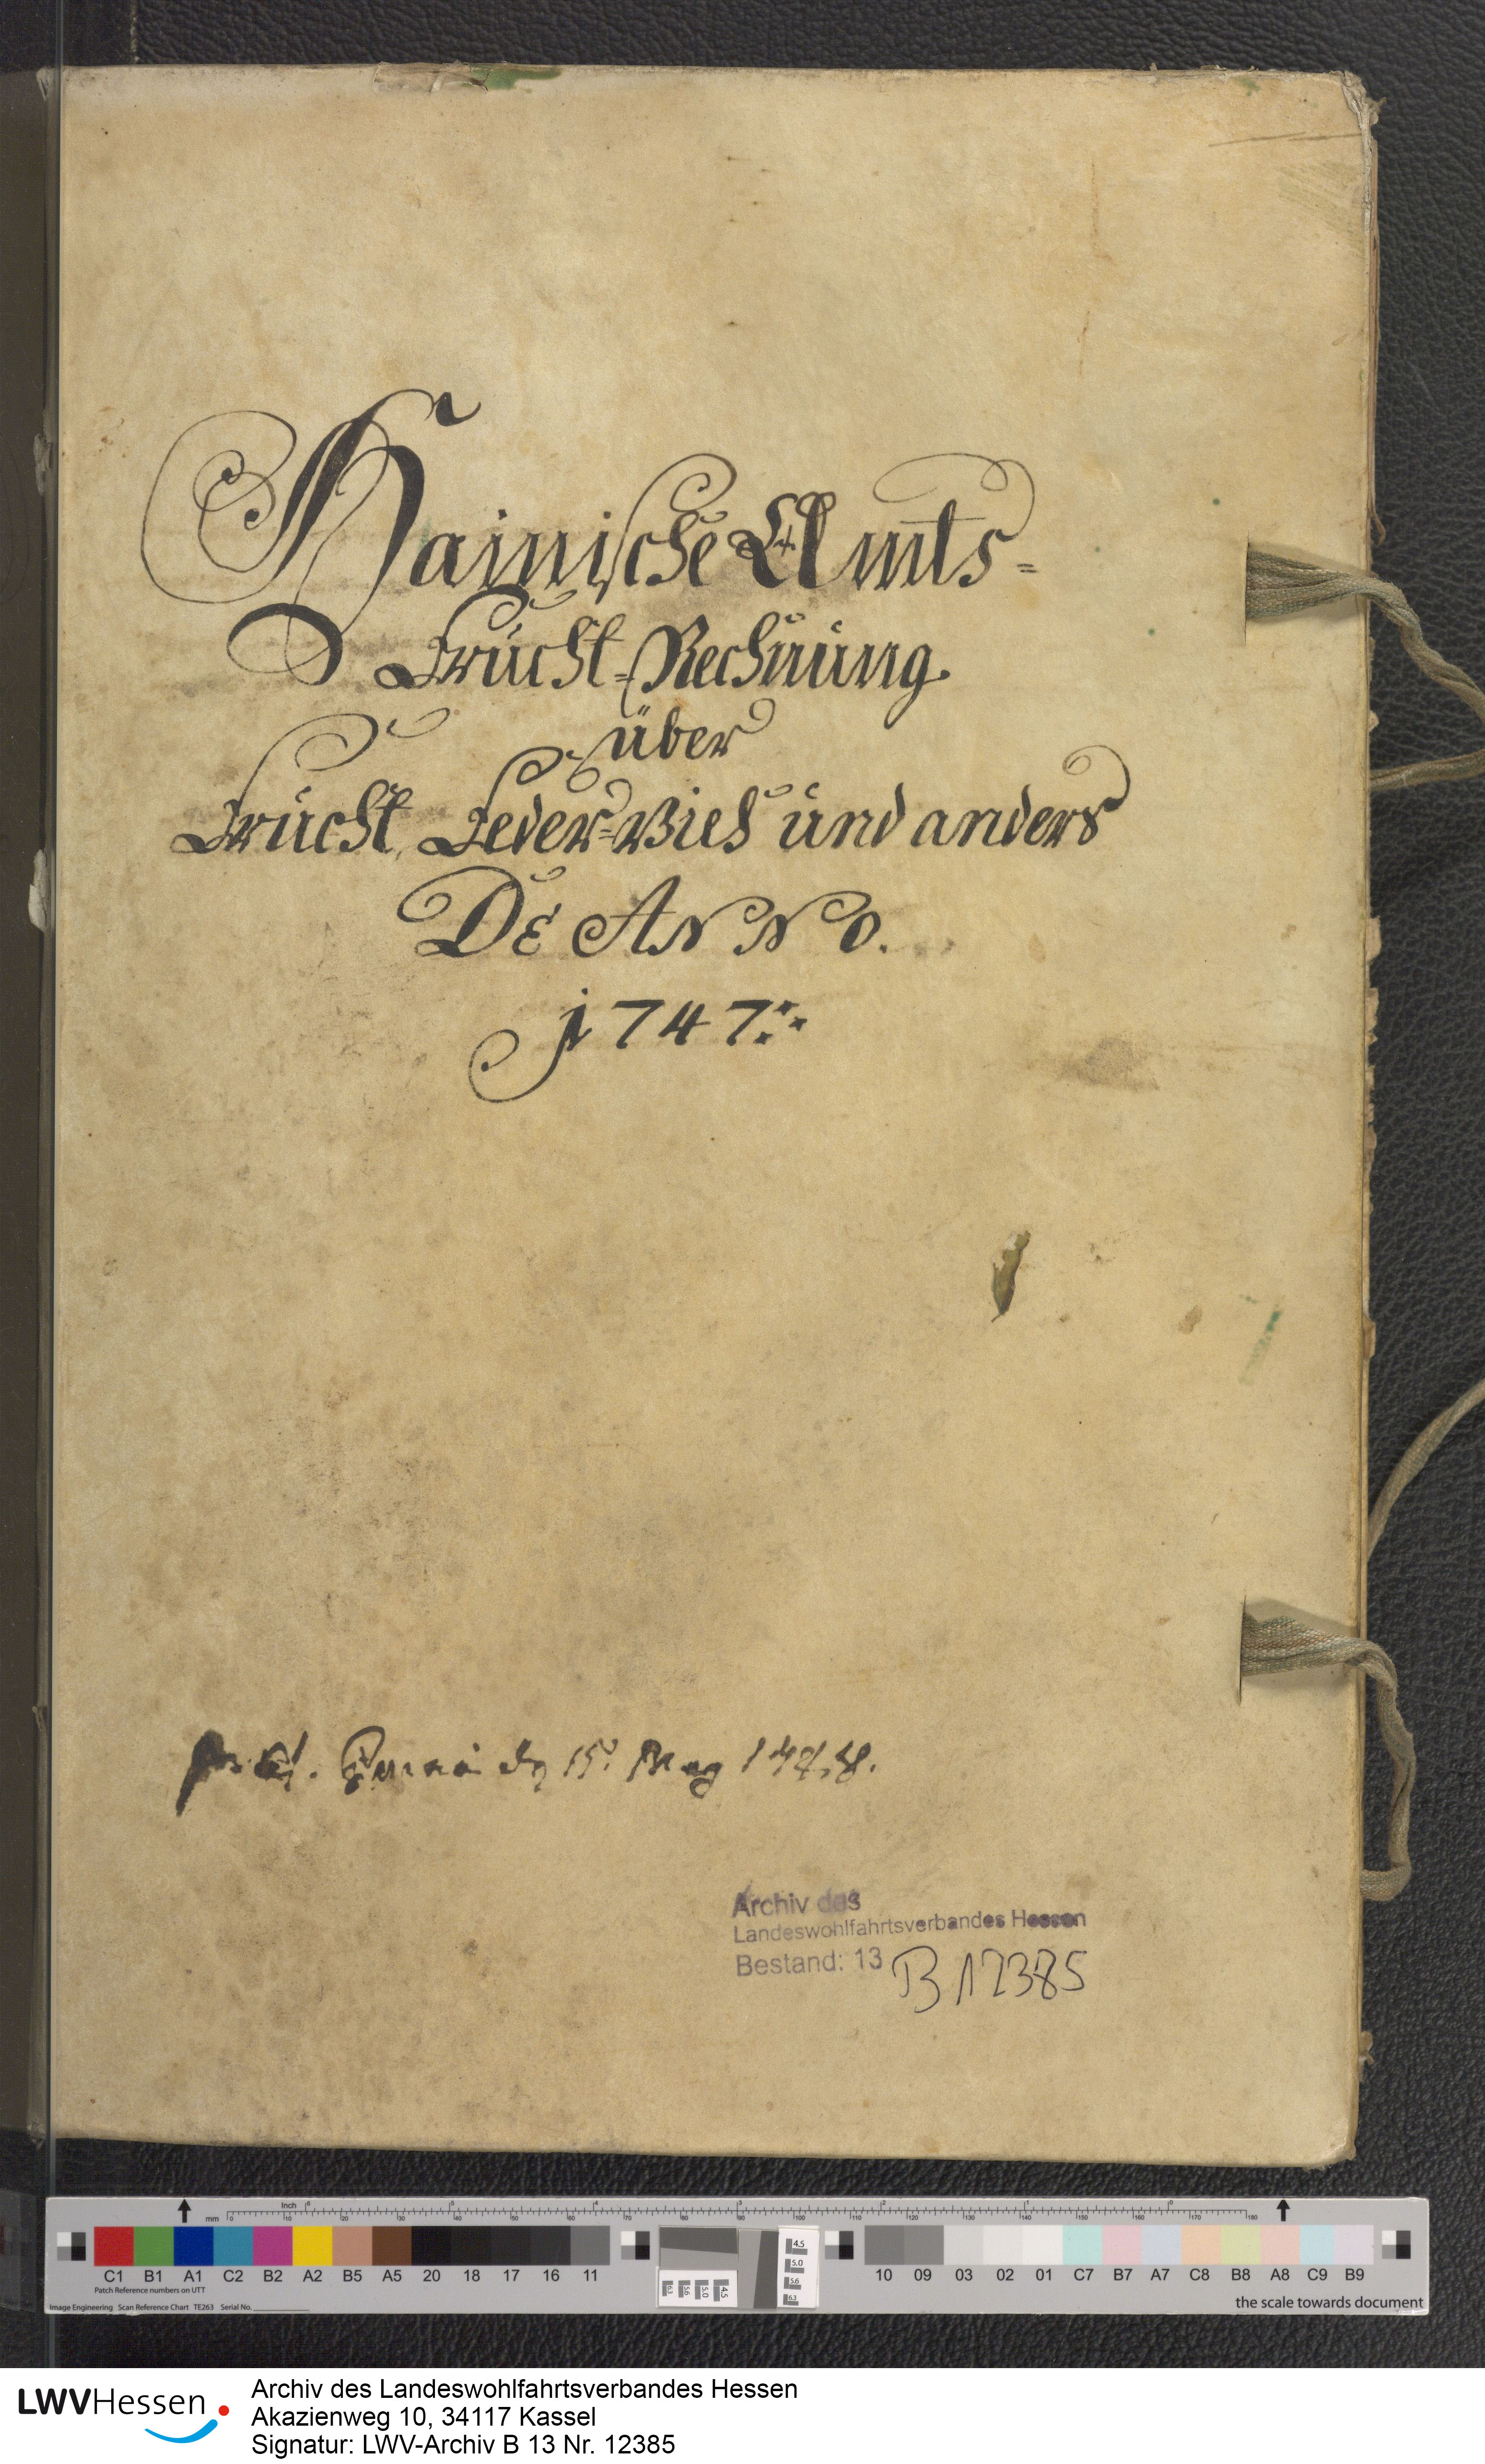 Hainische Amts=
Frucht=Rechnung
über
Frucht, Feder=Vieh und anders
DE ANNO.
1747
15. May 1748.
Archiv des
Landeswohlfahrtsverbandes Hessen
Bestand: 13 B 12385
Inch
mm
C1 B1 A1 C2 B2 A2 B5 A5 20 18 17 16 11 10 09 03 02 01 C7 B7 A7 C8 B8 A8 C9 B9
Patch Reference numbers on UTT
Image Engineering Scan Reference Chart TE263 Serial No.
the scale towards document
LWVHessen
Archiv des Landeswohlfahrtsverbandes Hessen
Akazienweg 10, 34117 Kassel
Signatur: LWV-Archiv B 13 Nr. 12385